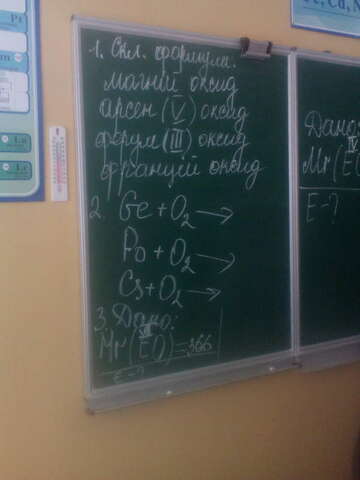 1. Скл. формули:
магній оксид
арсен (V) оксид
ферум (III) оксид
францій оксид
2. Ge + O2 →
Po + O2 →
Cs + O2 →
3. Дано:
VII
Mr (EO) = 366
E - ?
Дано:
IV
Mr (E
E - ?